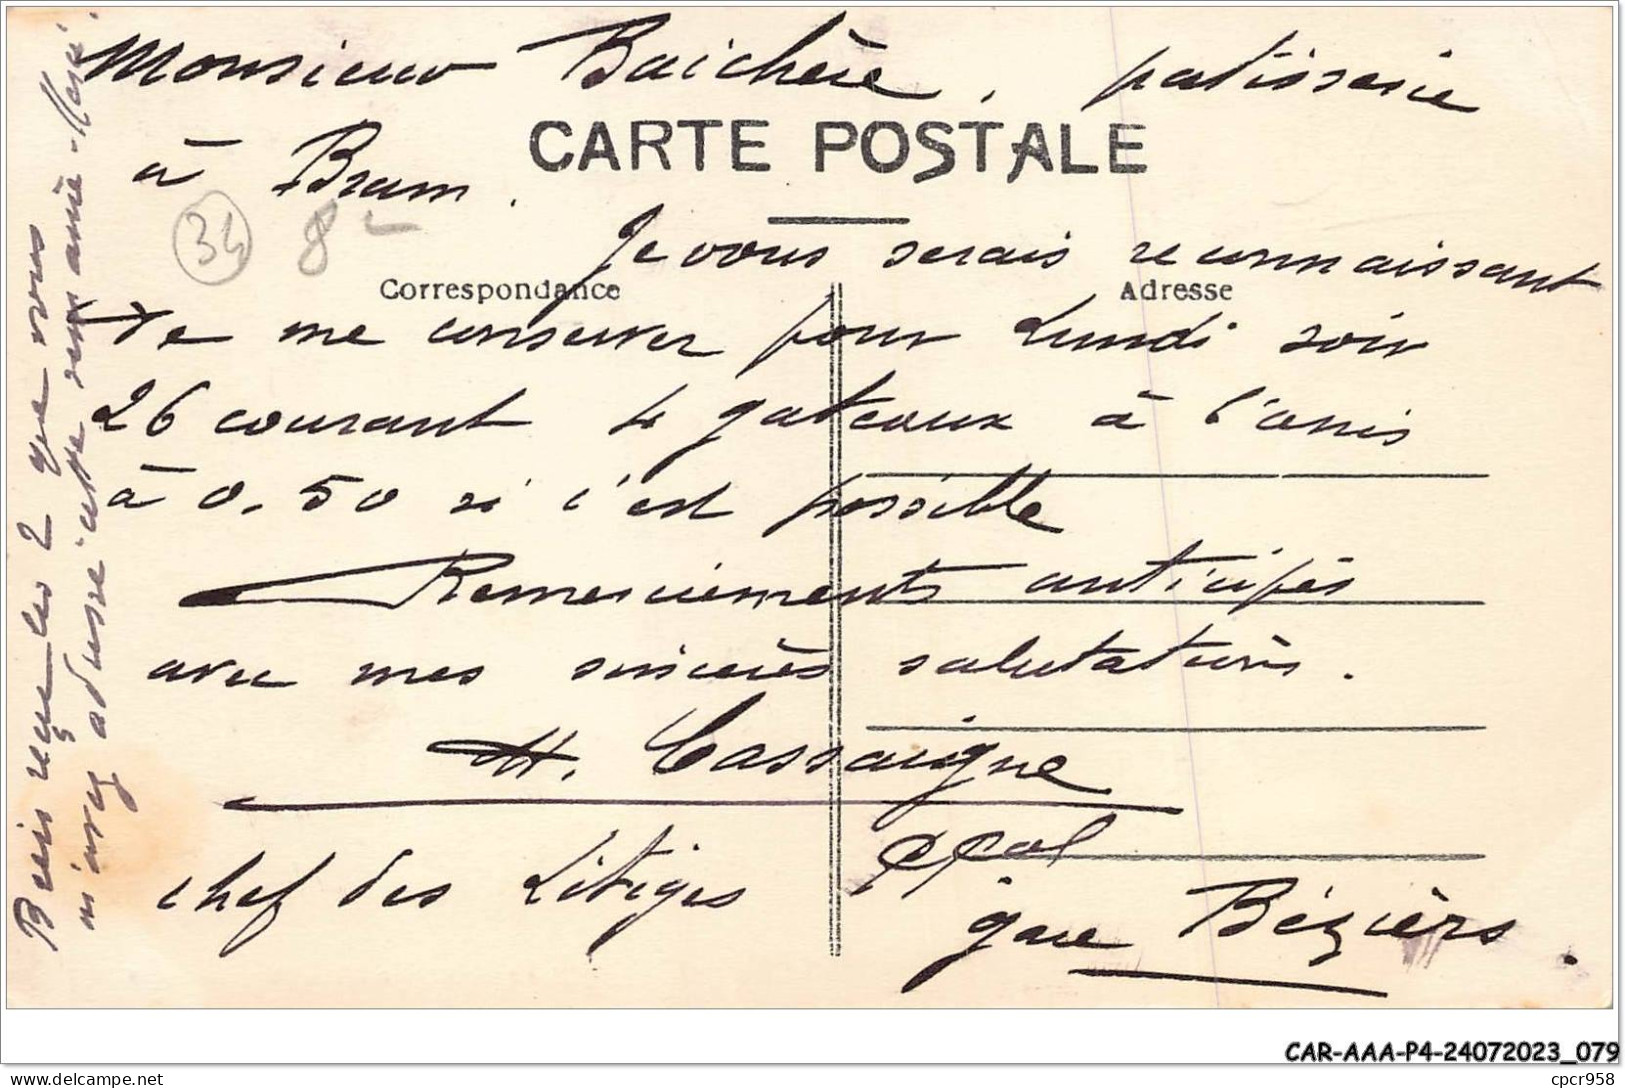 Monsieur Baichère, patisserie
CARTE POSTALE
à Bram.
34 8
Je vous serais reconnaissant
Correspondance
Adresse
de me conserver pour Lundi soir
26 courant 4 gateaux à l'anis
à 0.50 si c'est possible
Remerciements anticipés
avec mes sincères salutations.
H. Cassaigne
chef des Litiges
ppal
gare Béziers.
Bien reçu les 2 que vous
m'avez adressé cette année. Merci.
CAR-AAA-P4-24072023_079
delcampe.net
cpcr958